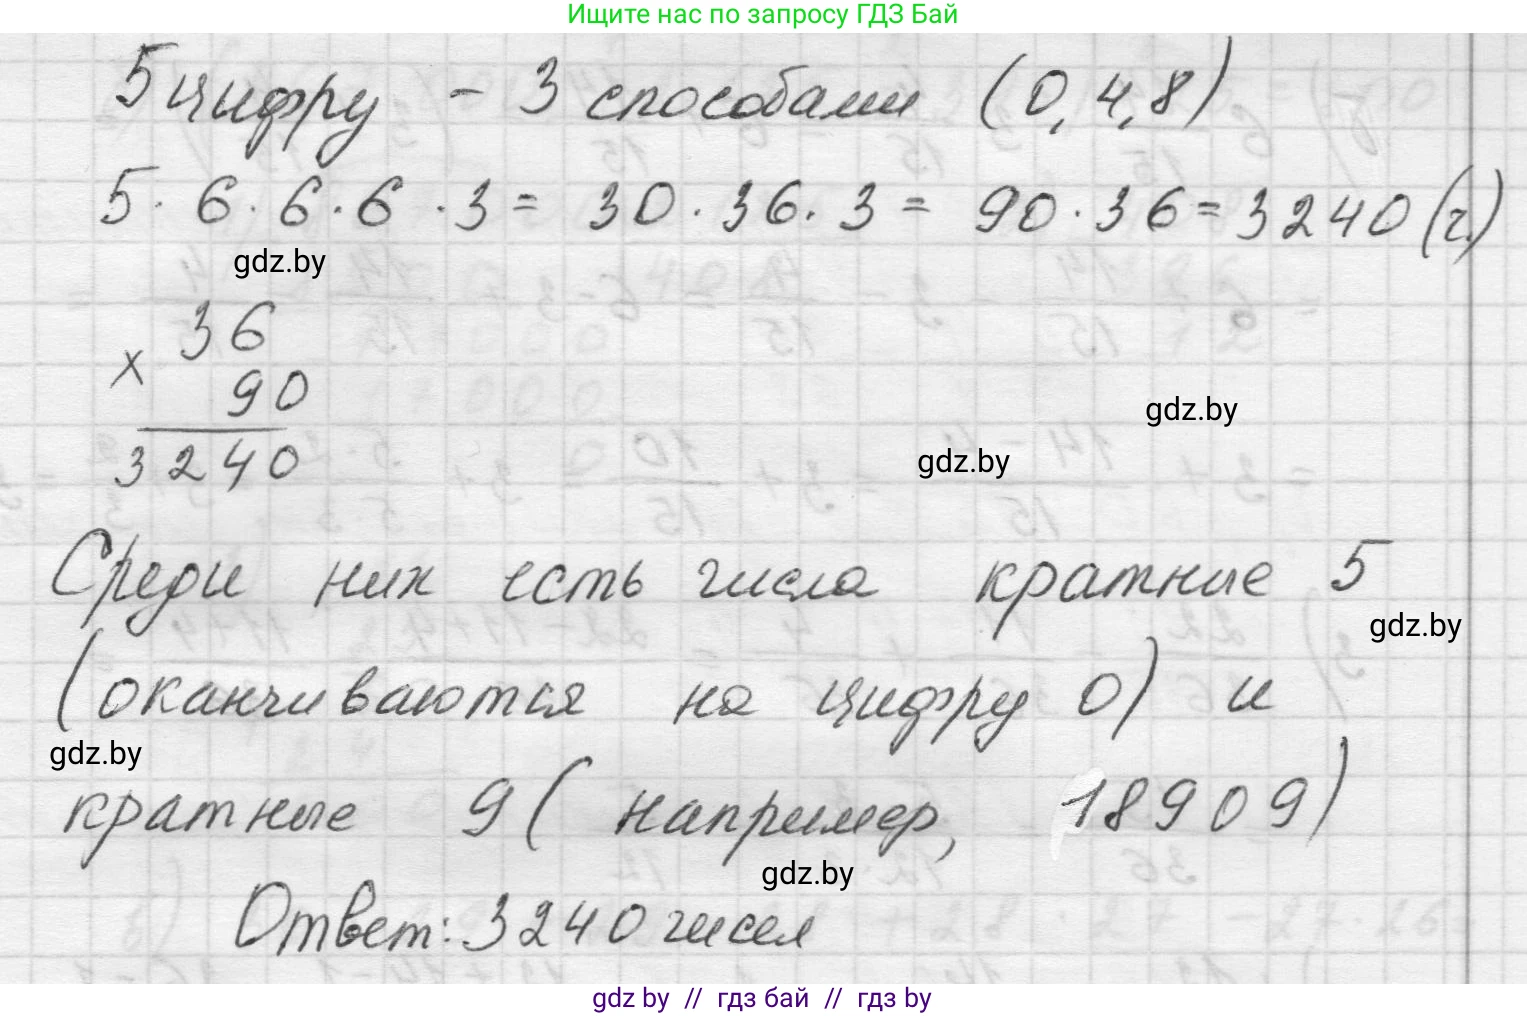 Ищите нас по запросу ГДЗ Бай
5 цифру - 3 способами (0, 4, 8)
5 · 6 · 6 · 6 · 3 = 30 · 36 · 3 = 90 · 36 = 3240 (ч.)
gdz.by
36
×
90
gdz.by
3240
gdz.by
Среди них есть числа кратные 5
gdz.by
(оканчиваются на цифру 0) и
gdz.by
кратные 9 (например, 18909)
gdz.by
Ответ: 3240 чисел
gdz by // гдз бай // гдз by